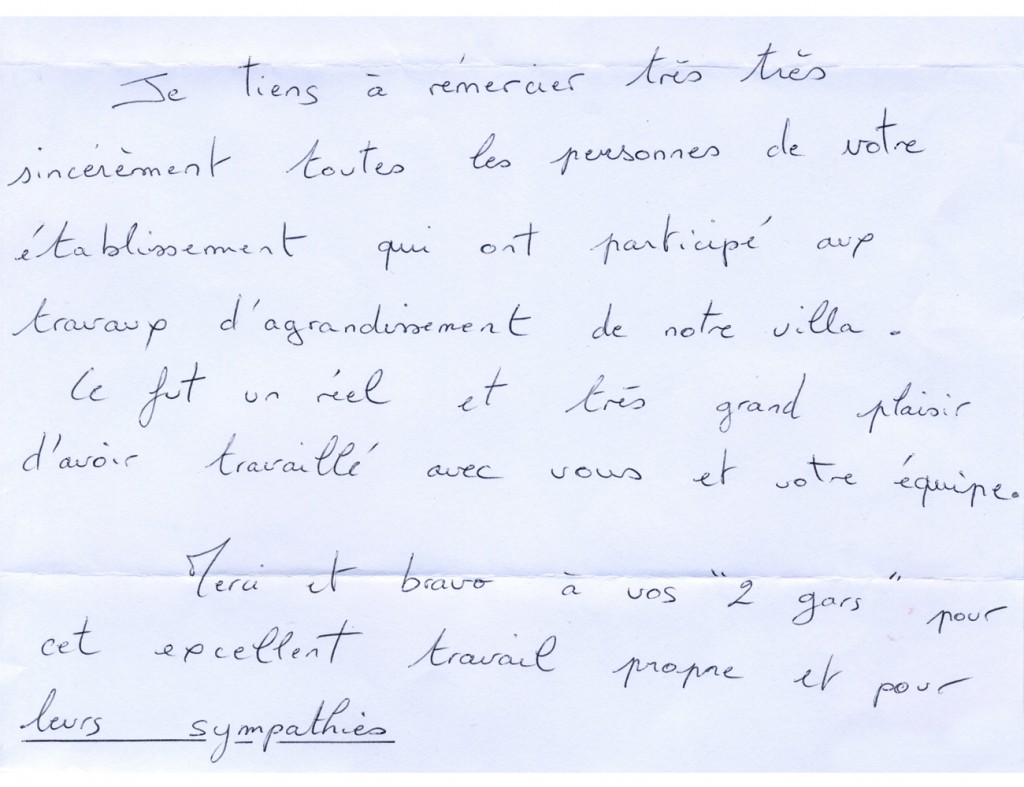 Je tiens à rémercier très très
sincérèment toutes les personnes de votre
établissement qui ont participé aux
travaux d'agrandissement de notre villa.
Ce fut un réel et très grand plaisir
d'avoir travaillé avec vous et votre équipe.
Merci et bravo à vos "2 gars" pour
cet excellent travail propre et pour
leurs sympathies